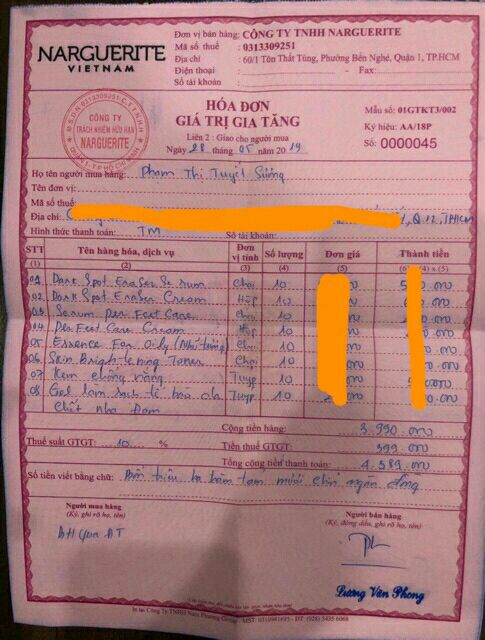 NARGUERITE
VIETNAM
Đơn vị bán hàng: CÔNG TY TNHH NARGUERITE
Mã số thuế : 0313309251
Địa chỉ : 60/1 Tôn Thất Tùng, Phường Bến Nghé, Quận 1, TP.HCM
Điện thoại : - Fax:
Số tài khoản :
M.S.D.N:0313309251-C.T.T.N.H.H
CÔNG TY
TRÁCH NHIỆM HỮU HẠN
NARGUERITE
HÓA ĐƠN
GIÁ TRỊ GIA TĂNG
Liên 2 : Giao cho người mua
Ngày 28 tháng 05 năm 2019
Mẫu số: 01GTKT3/002
Ký hiệu: AA/18P
Số: 0000045
Họ tên người mua hàng: Phạm Thị Tuyết Sương
Tên đơn vị:
Mã số thuế:
Địa chỉ: Q 12, TPHCM
Hình thức thanh toán: TM Số tài khoản:
STT Tên hàng hóa, dịch vụ Đơn vị tính Số lượng Đơn giá Thành tiền
(1) (2) (3) (4) (5) (4) x (5)
01 Dark Spot Eraser Serum Chai 10
02 Dark Spot Eraser Cream Hộp 10
03 Serum Perfect Care Chai 10
04 Perfect Care Cream Hộp 10
05 Essence For Oily Chai 10
06 Skin Brightening Toner Chai 10
07 Kem chống nắng Tuýp 10
08 Gel làm sạch tế bào da Tuýp 10
chết nha đam
Cộng tiền hàng: 3.990.000
Thuế suất GTGT: 10 % Tiền thuế GTGT: 399.000
Tổng cộng tiền thanh toán: 4.389.000
Số tiền viết bằng chữ: Bốn triệu ba trăm tám mươi chín ngàn đồng
Người mua hàng
(Ký, ghi rõ họ, tên)
Người bán hàng
(Ký, đóng dấu, ghi rõ họ, tên)
BH qua ĐT
Lương Văn Phong